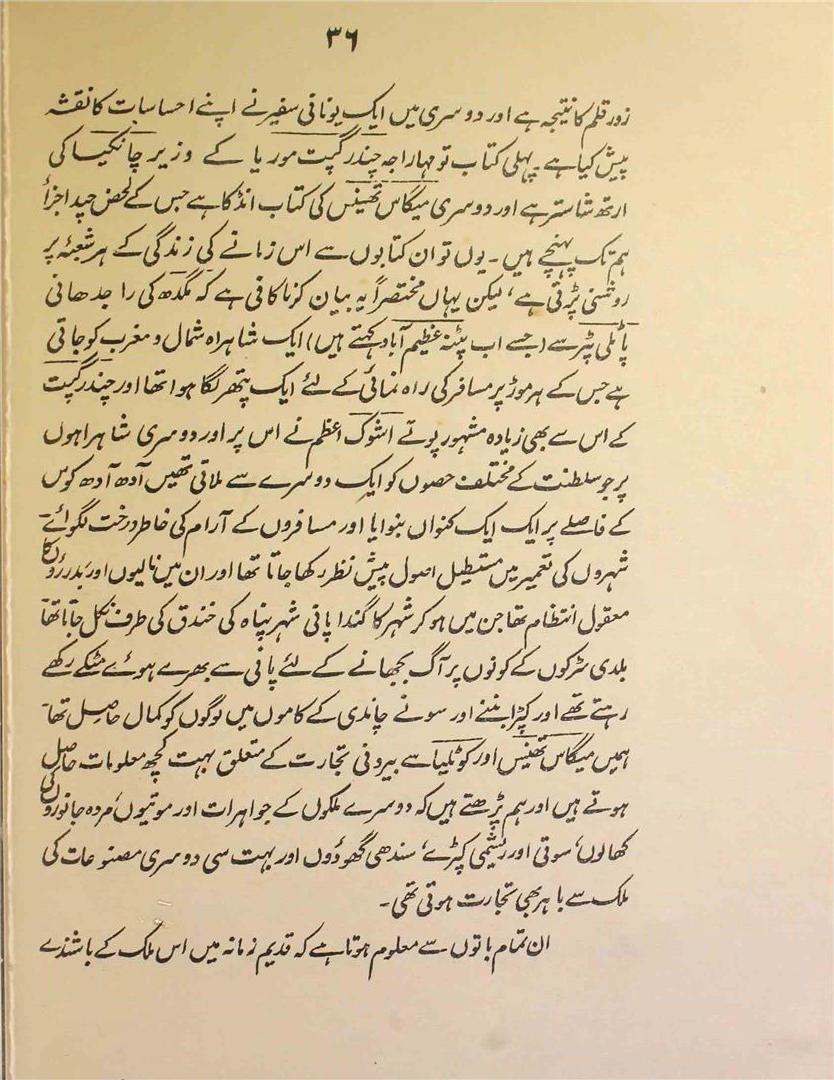 ۳۶
زور قلم کا نتیجہ ہے اور دوسری میں ایک یونانی سفیر نے اپنے احساسات کا نقشہ
پیش کیا ہے۔ پہلی کتاب تو مہاراجہ چندر گپت موریا کے وزیر چانکیسا کی
ارتھ شاستر ہے اور دوسری میگاس تھینس کی کتاب انڈکا ہے جس کے محض چند اجزأ
ہم تک پہنچے ہیں۔ یوں تو ان کتابوں سے اس زمانے کی زندگی کے ہر شعبۂ پر
روشنی پڑتی ہے، لیکن یہاں مختصراً یہ بیان کرنا کافی ہے کہ مگدھ کی راجدھانی
پاٹلی پتر سے (جسے اب پٹنہ عظیم آباد کہتے ہیں) ایک شاہراہ شمال و مغرب کو جاتی
ہے جس کے ہر موڑ پر مسافر کی راہ نمائی کے لئے ایک پتھر لگا ہوا تھا اور چندر گپت
کے اس سے بھی زیادہ مشہور پوتے اشوک اعظم نے اس پر اور دوسری شاہراہوں
پر جو سلطنت کے مختلف حصوں کو ایک دوسرے سے ملاتی تھیں آدھ آدھ کوس
کے فاصلے پر ایک ایک کنواں بنوایا اور مسافروں کے آرام کی خاطر درخت لگوائے۔
شہروں کی تعمیر میں مستطیل اصول پیش نظر رکھا جاتا تھا اور ان میں نالیوں اور بدرروں کا
معقول انتظام تھا جن میں ہو کر شہر کا گندا پانی شہر پناہ کی خندق کی طرف نکل جاتا تھا
بلدی سڑکوں کے کونوں پر آگ بجھانے کے لئے پانی سے بھرے ہوئے مٹکے رکھے
رہتے تھے اور کپڑا بننے اور سونے چاندی کے کاموں میں لوگوں کو کمال حاصل تھا۔
ہمیں میگاس تھینس اور کوٹلیا سے بیرونی تجارت کے متعلق بہت کچھ معلومات حاصل
ہوتے ہیں اور ہم پڑھتے ہیں کہ دوسرے ملکوں کے جواہرات اور موتیوں، مردہ جانوروں کی
کھالوں، سوتی اور ریشمی کپڑے، سندھی گھوڑوں اور بہت سی دوسری مصنوعات کی
ملک سے باہر بھی تجارت ہوتی تھی۔
ان تمام باتوں سے معلوم ہوتا ہے کہ قدیم زمانہ میں اس ملک کے باشندے